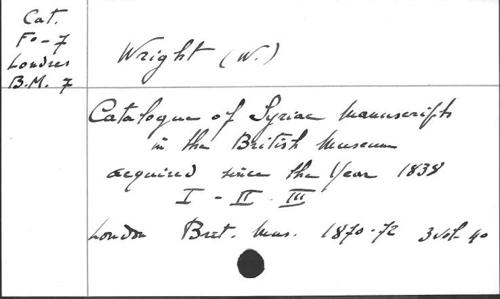 Cat.
Fo - 7
Londres
B.M. 7
Wright (W.)
Catalogue of Syriac manuscripts
in the British Museum
acquired since the Year 1838
I - II - III
London Brit. Mus. 1870-72 3 vol. 4o